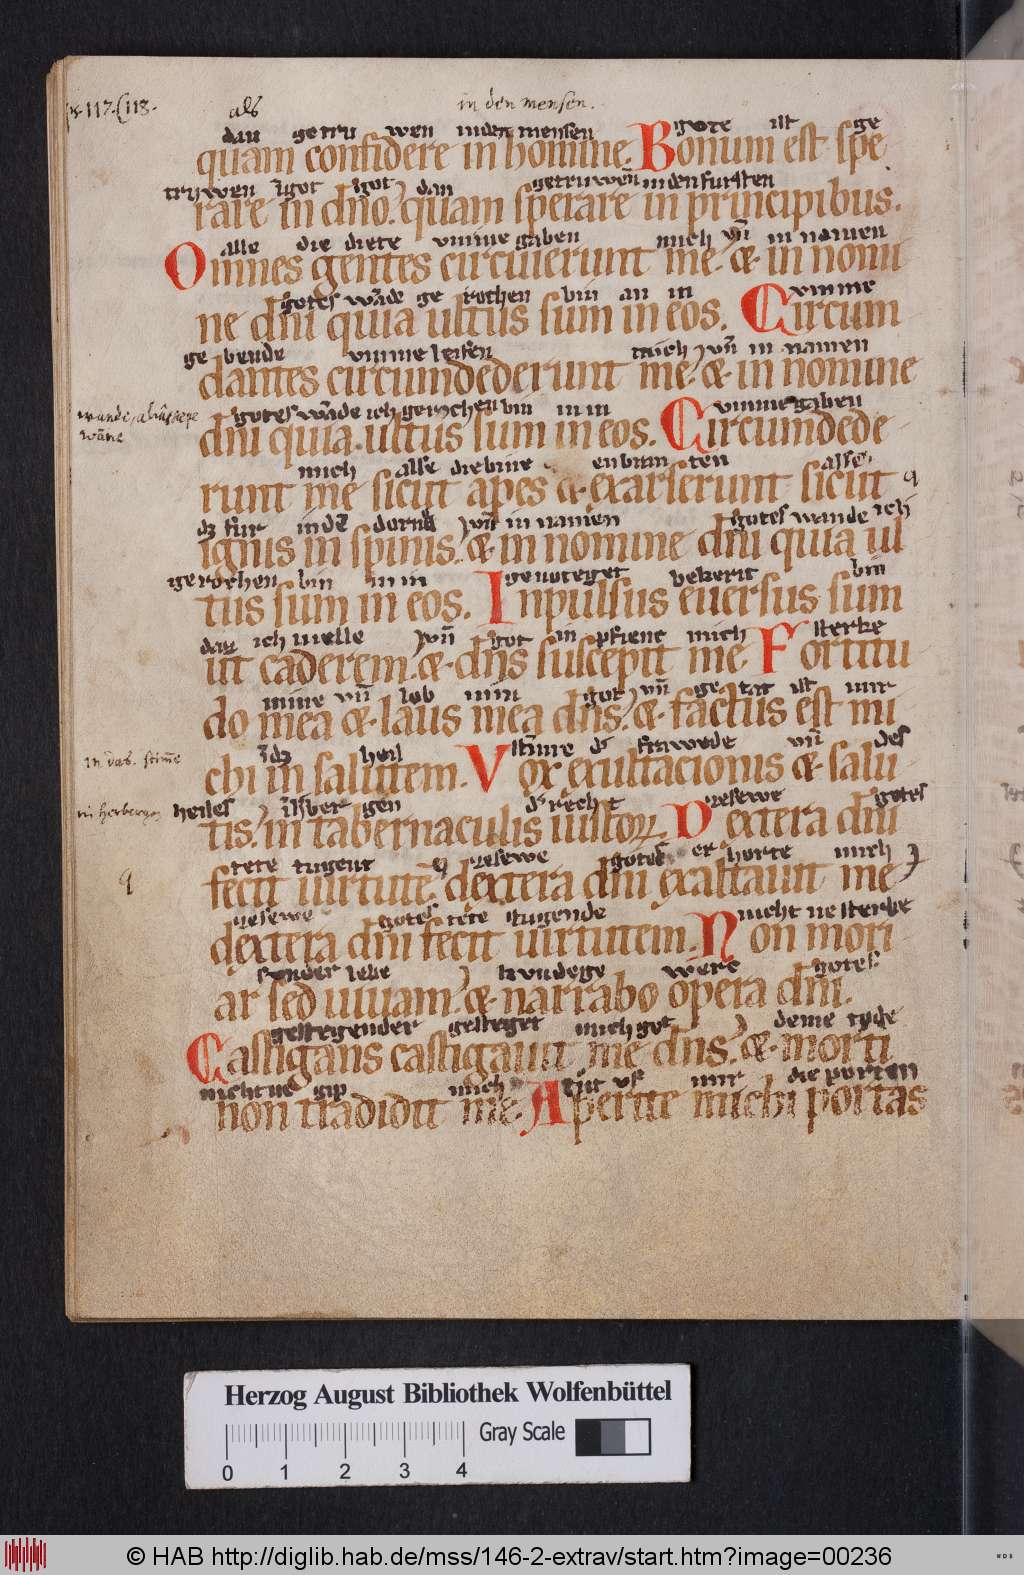 ps. 117. (118.
als in den mensen.
dan getru wen inden mensen gote ist ge
quam confidere in homine. Bonum est spe
truwen īgot got dan getruwen inden fursten
rare in dn̄o. quam sperare in principibus.
alle die diete vmme gaben mich vn̄ in namen
Omnes gentes circuierunt me. & in nomi
gotes wāde ge rochen bin an in vmme
ne dn̄i quia ultus sum in eos. Circum
ge bende vmme leiten mich vn̄ in namen
dantes circumdederunt me. & in nomine
gotes wāde ich gerochen bin in in vmmegaben
dn̄i quia. ultus sum in eos. Circumdede
mich alse die bine enbran ten alse
runt me sicut apes & exarserunt sicut
dz fur inden dorne vn̄ in namen gotes wande ich
ignis in spinis. & in nomine dn̄i quia ul
gerochen bin in in genoteget bekerit bin
tus sum in eos. Inpulsus euersus sum
daz ich uielle vn̄ got in pfienc mich sterke
ut caderem. & dn̄s suscepit me. Fortitu
mine vn̄ lob min got vn̄ ge tat ist mir
do mea & laus mea dn̄s. & factus est mi
īdz heil stīme d' frawede vn̄ des
chi in salutem. Vox exultacionis & salu
in das. stim̄e
heiles d' recht zesewe gotes
tis. in tabernaculis iustoꝝ. Dextera dn̄i
in herbergen
tete tugent zesewe gotes er horte mich
fecit uirtutē. dextera dn̄i exaltauit me
zesewe gotes tete tugende nicht ne sterbe
dextera dn̄i fecit uirtutem. Non mori
sunder lebe kundege werc gotes
ar sed uiuam. & narrabo opera dn̄i.
gestegender gesteget mich got deme tode
Castigans castigauit me dn̄s. & morti
nicht ne gip mich tut vf mir die porten
non tradidit me. Aperite michi portas
Herzog August Bibliothek Wolfenbüttel
Gray Scale
0 1 2 3 4
© HAB http://diglib.hab.de/mss/146-2-extrav/start.htm?image=00236